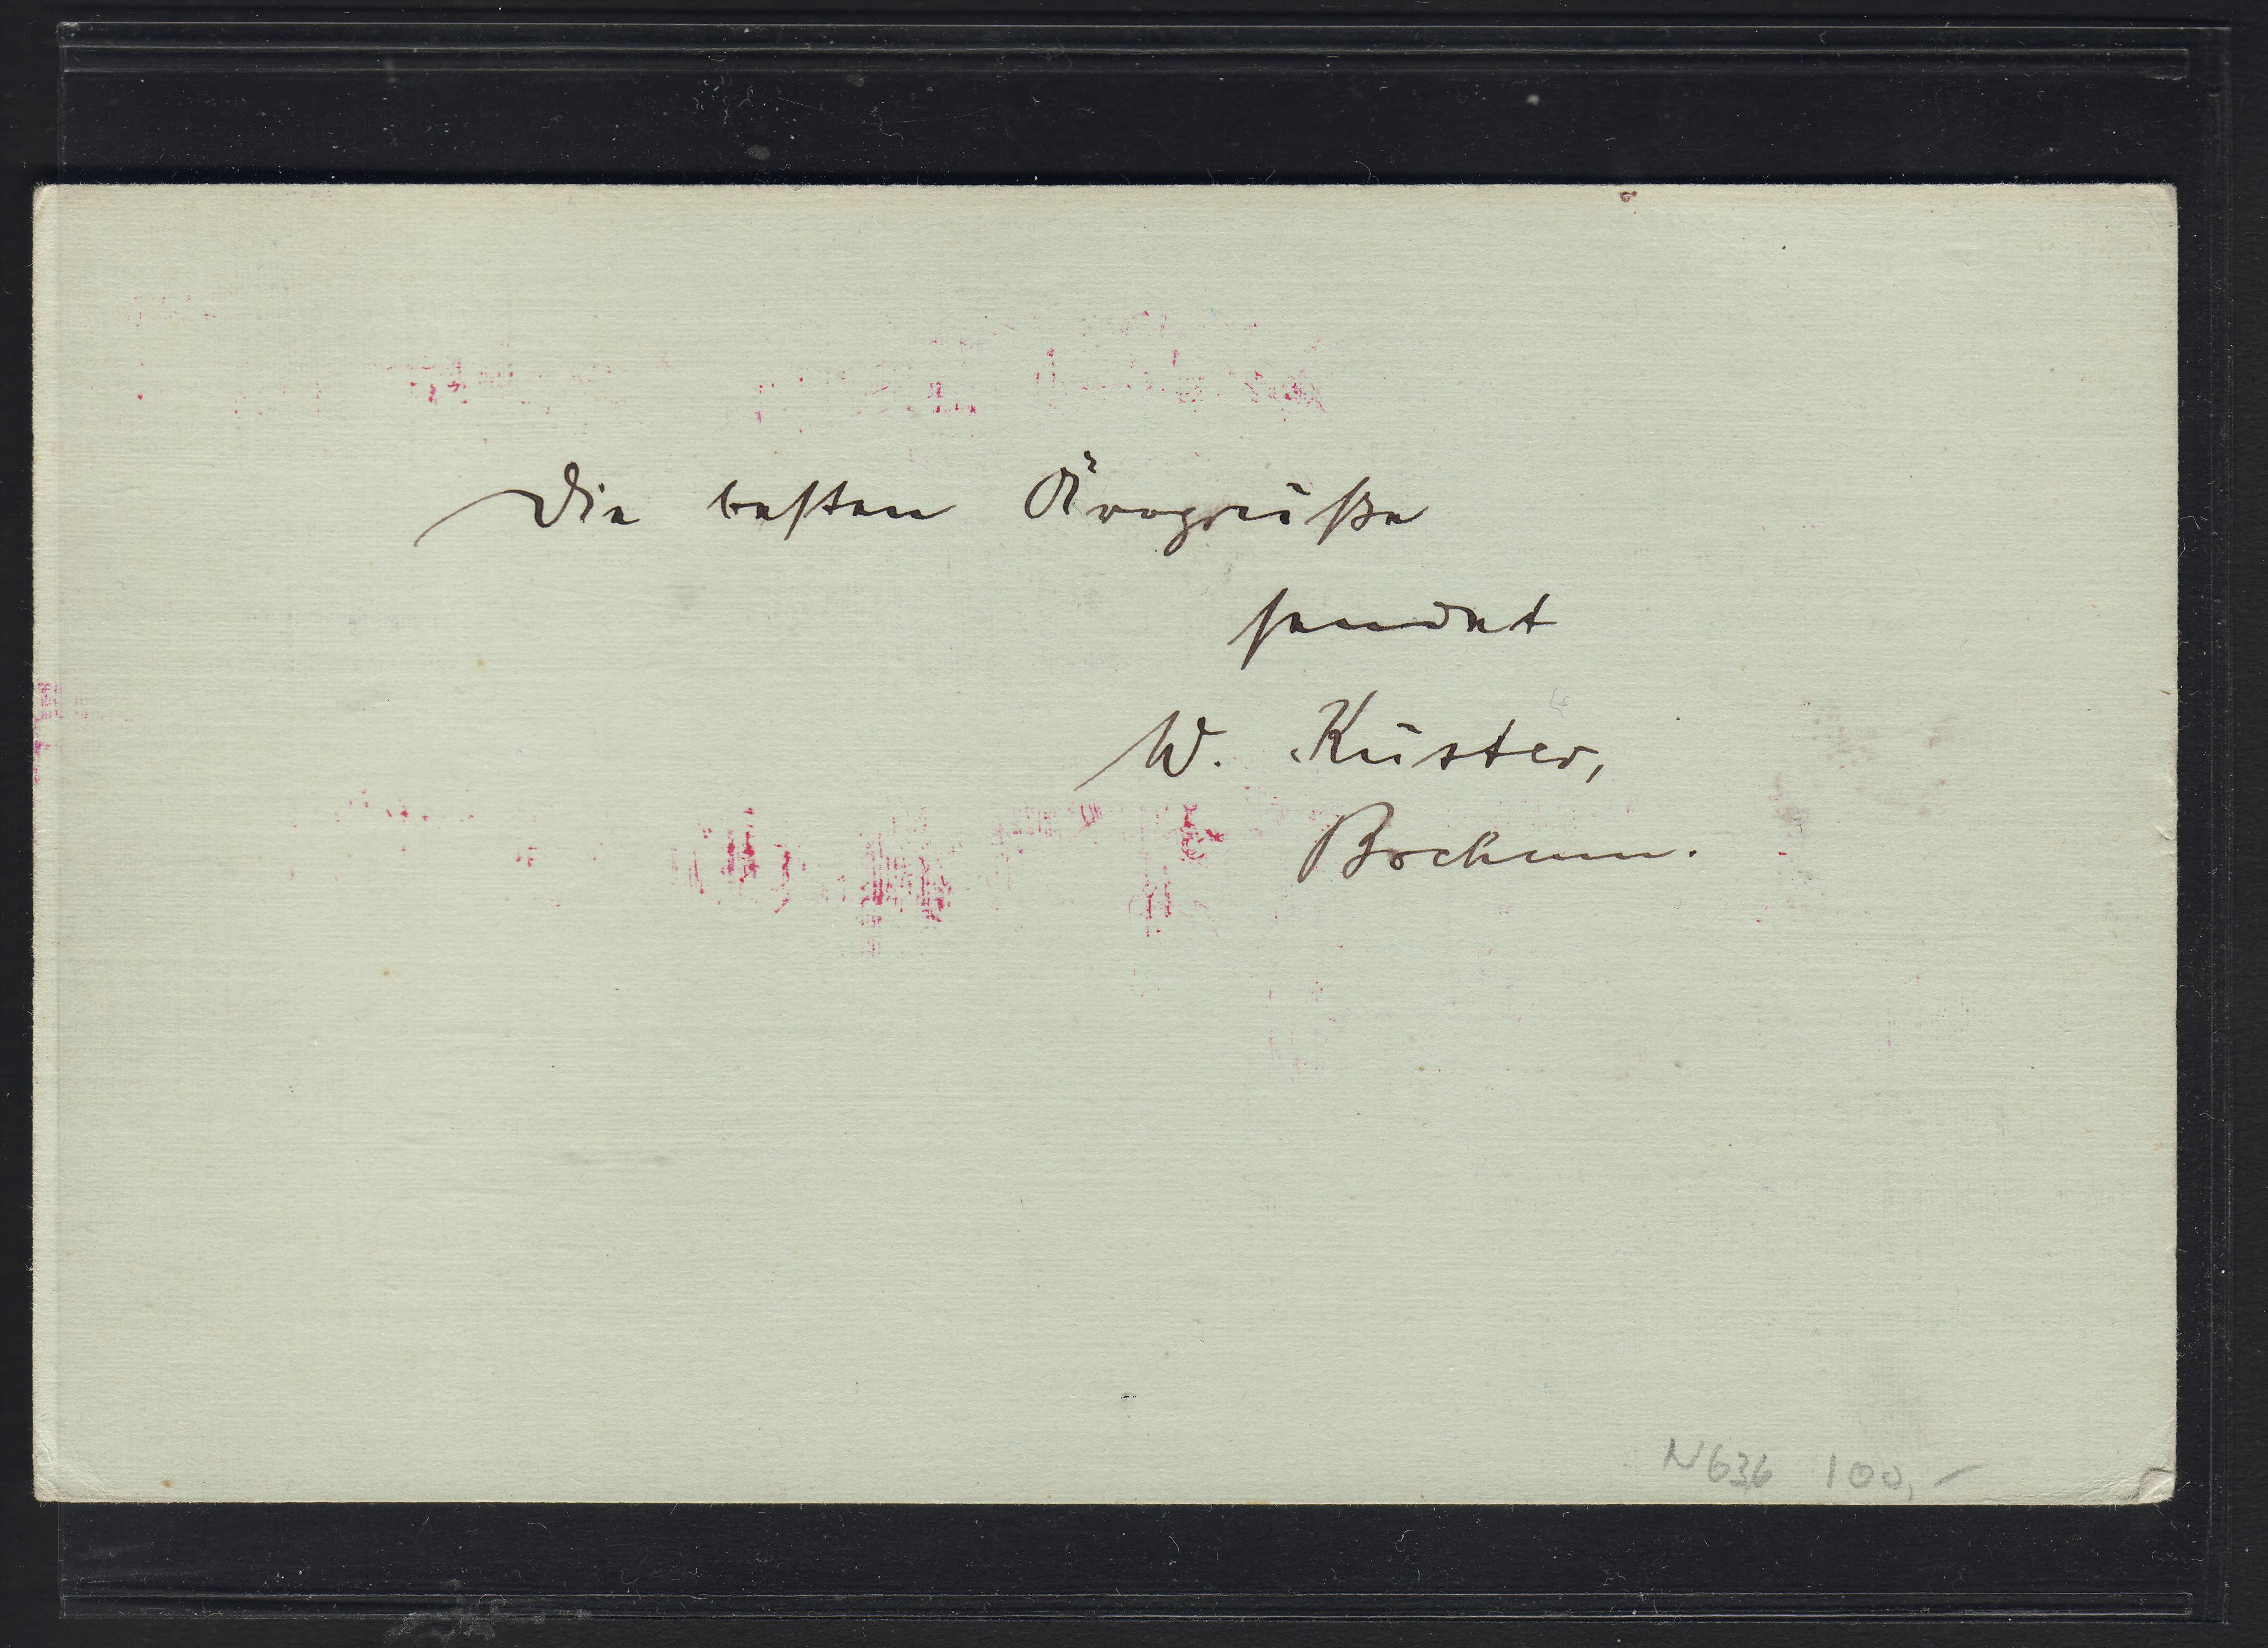 Die besten Ärogrüße
sendet
W. Küster,
Bochum.
N636 100,-